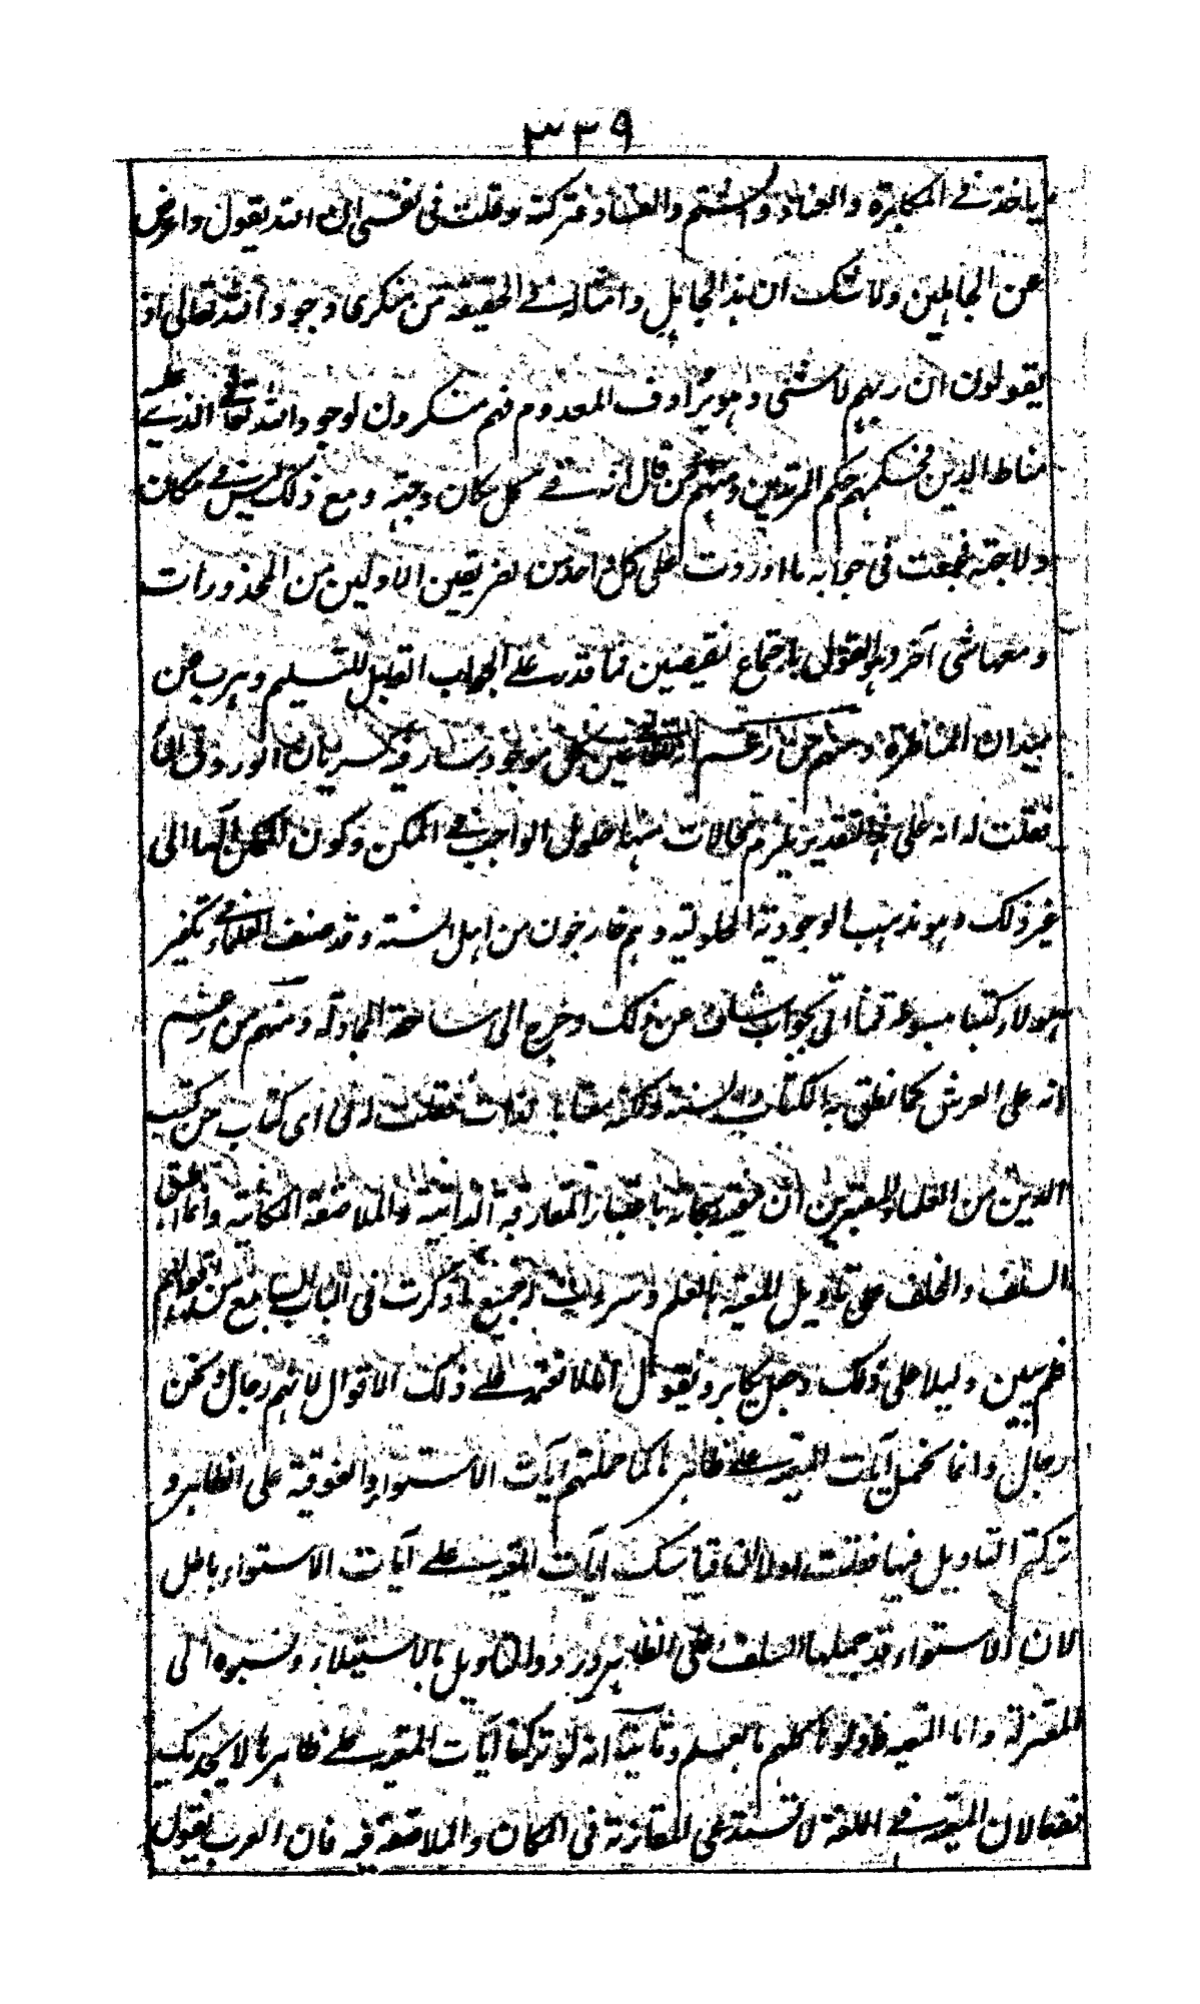 ٣٣٩
ياخذ في المكابرة والعناد والشتم والفساد فتركته وقلت في نفسي ان الله يقول واعرض
عن الجاهلين ولا شك ان هذا الجاهل وامثاله في الحقيقة من منكري وجود الله تعالى اذ
يقولون ان ربهم لا شئ وهو يرادف المعدوم فهم منكرون لوجود الله تعالى الذي عليه
مناط الدين فحكمهم حكم المرتدين ومنهم من قال انه في كل مكان وجهة ومع ذلك ليس في مكان
ولا جهة فجمعت في جوابه ما اوردت على كل واحد من الفريقين الاولين من المحذورات
ومعها شئ آخر وهو القول باجتماع نقيضين فما قدر على الجواب القابل للتسليم وهرب من
ميدان المناظرة ومنهم من زعم انه تعالى عين كل موجود سار فيه كسريان الورد في الماء
فقلت له انه على هذا التقدير يلزم محالات منها حلول الواجب في الممكن وكون الممكن آلها الى
غير ذلك وهو مذهب الوجودية الحلولية وهم خارجون من اهل السنة وقد صنف العلماء في تكفير
هولاء كتبا مبسوطة فما اتى بجواب شاف عن ذلك وخرج الى ساحة المجادلة ومنهم من زعم
انه على العرش كما نطق به الكتاب والسنة ولكنه معنا بالذات فقلت له في اي كتاب من كتب
الدين من العلماء المعتبرين ان معيته سبحانه باعتبار المقارنة الذاتية والملاصقة المكانية وانما اتفق
السلف والخلف على تاويل المعية بالعلم وسردت جميع ما ذكرت في الباب السابع من اقوالهم
فلم يبين دليلا على ذلك وجعل يكابر ويقول انا لا نعتمد على ذلك الاقوال لانهم رجال ونحن
رجال وانما نحمل آيات المعية على ظاهرها كما حملتهم آيات الاستواء والفوقية على الظاهر و
تركتم التاويل فيها فقلت له اولا ان قياسك لآيات المعية على آيات الاستواء باطل
لان الاستواء قد حملها السلف على الظاهر وردوا التاويل بالاستيلاء ونسبوه الى
المعتزلة واما المعية فاولوها كلهم بالعلم وثانيا انه لو تركنا آيات المعية على ظاهرها لا يجديك
نفعا لان المعية في اللغة لا تستدعي المقارنة في المكان والملاصقة فيه فان العرب يقول